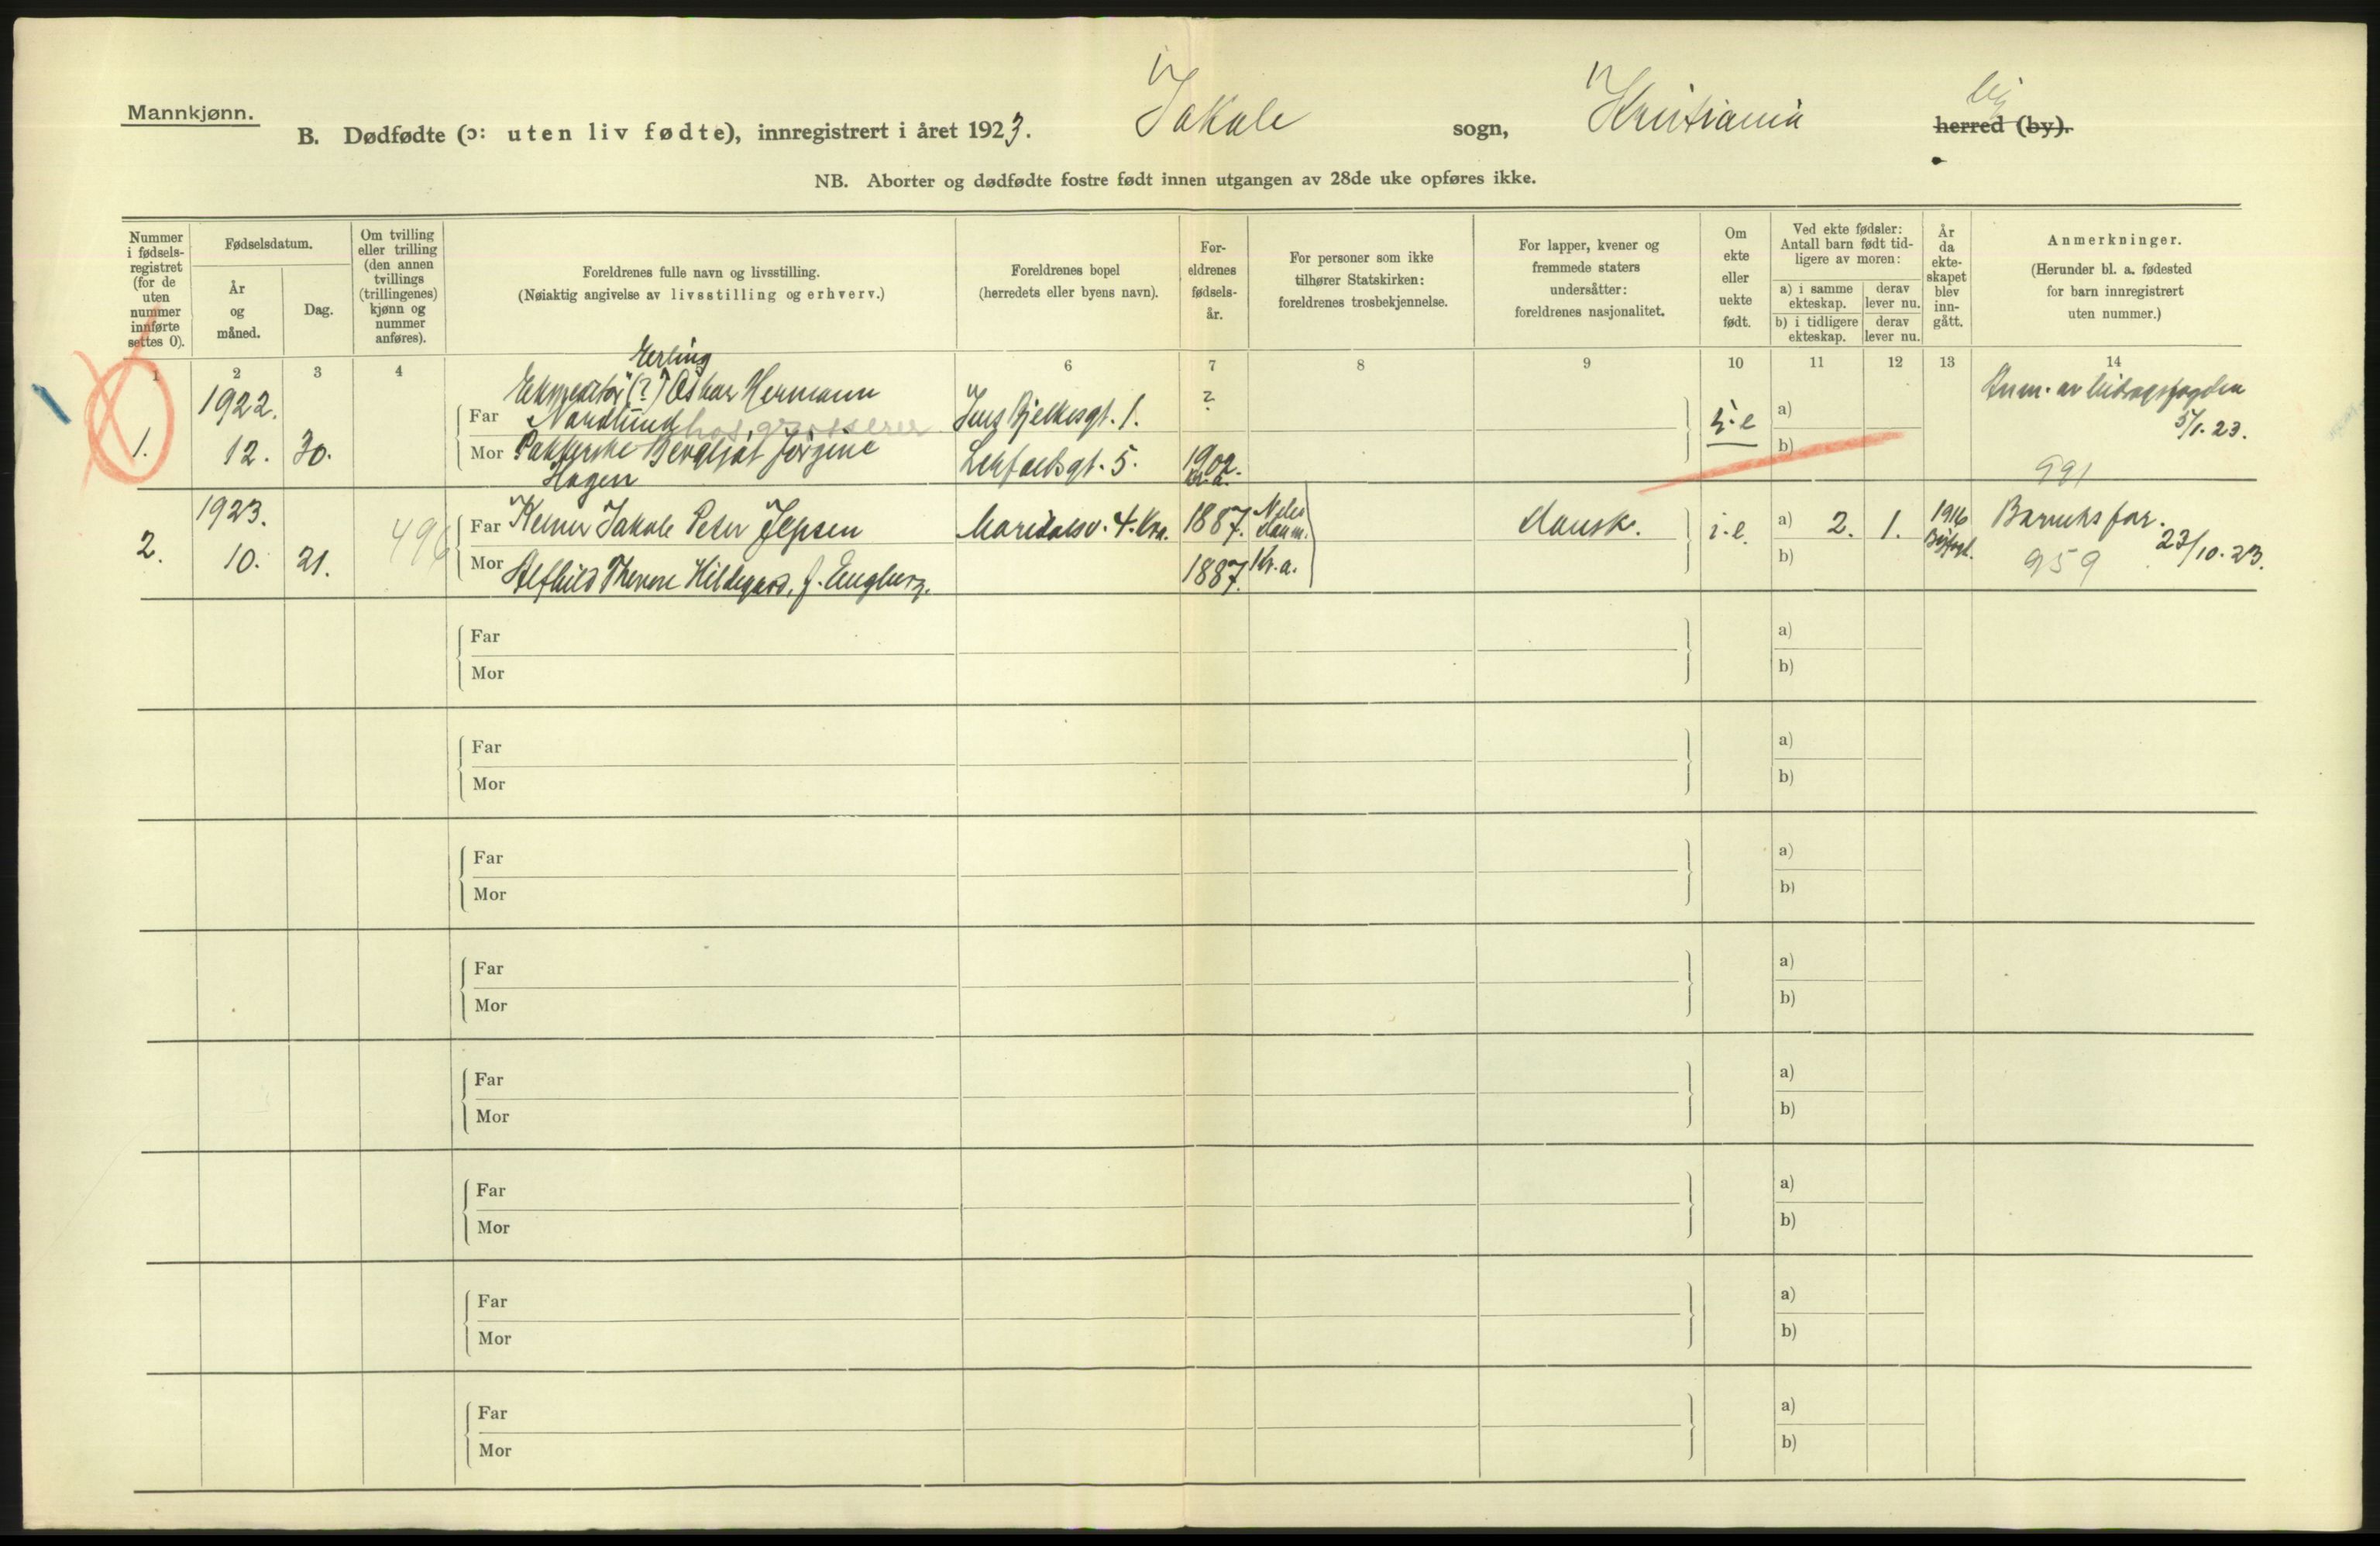 Mannkjønn.
B. Dødfødte (ɔ: uten liv fødte), innregistrert i året 1923. Jakob sogn, Kristiania by herred (by).
NB. Aborter og dødfødte fostre født innen utgangen av 28de uke opføres ikke.
Nummer i fødsels- registret (for de uten nummer innførte settes 0).
Fødselsdatum.
År og måned.
Dag.
Om tvilling eller trilling (den annen tvillings (trillingenes) kjønn og nummer anføres).
Foreldrenes fulle navn og livsstilling.
(Nøiaktig angivelse av livsstilling og erhverv.)
Foreldrenes bopel
(herredets eller byens navn).
For- eldrenes fødsels- år.
For personer som ikke tilhører Statskirken: foreldrenes trosbekjennelse.
For lapper, kvener og fremmede staters undersåtter: foreldrenes nasjonalitet.
Om ekte eller uekte født.
Ved ekte fødsler: Antall barn født tid- ligere av moren:
a) i samme ekteskap.
derav lever nu.
b) i tidligere ekteskap.
derav lever nu.
År da ekte- skapet blev inn- gått.
Anmerkninger.
(Herunder bl. a. fødested for barn innregistrert uten nummer.)
1 2 3 4 6 7 8 9 10 11 12 13 14
Erling
1922. Ekspeditør (?) Oskar Hermann
Far Nordlund hos grosserer Jens Bjelkesgt. 1. ? a) Anm. av bidragsfogden
5/1. 23.
1. 12. 30. Mor Bergljot Jørgine Hagen 5. 1902. Kr.a. b)
991
1923.
496 Far Kelner Jakob Peter Jepsen Maridalsv. 4. Kra. 1887. dansk. i.e. a) 2. 1. 1916 Barnets far.
2. 10. 21. Mor Alfhild Therese Hildegard, f. Engberg. 1887. Kr.a. b) 959 23/10. 23.
Far a)
Mor b)
Far a)
Mor b)
Far a)
Mor b)
Far a)
Mor b)
Far a)
Mor b)
Far a)
Mor b)
Far a)
Mor b)
Far a)
Mor b)